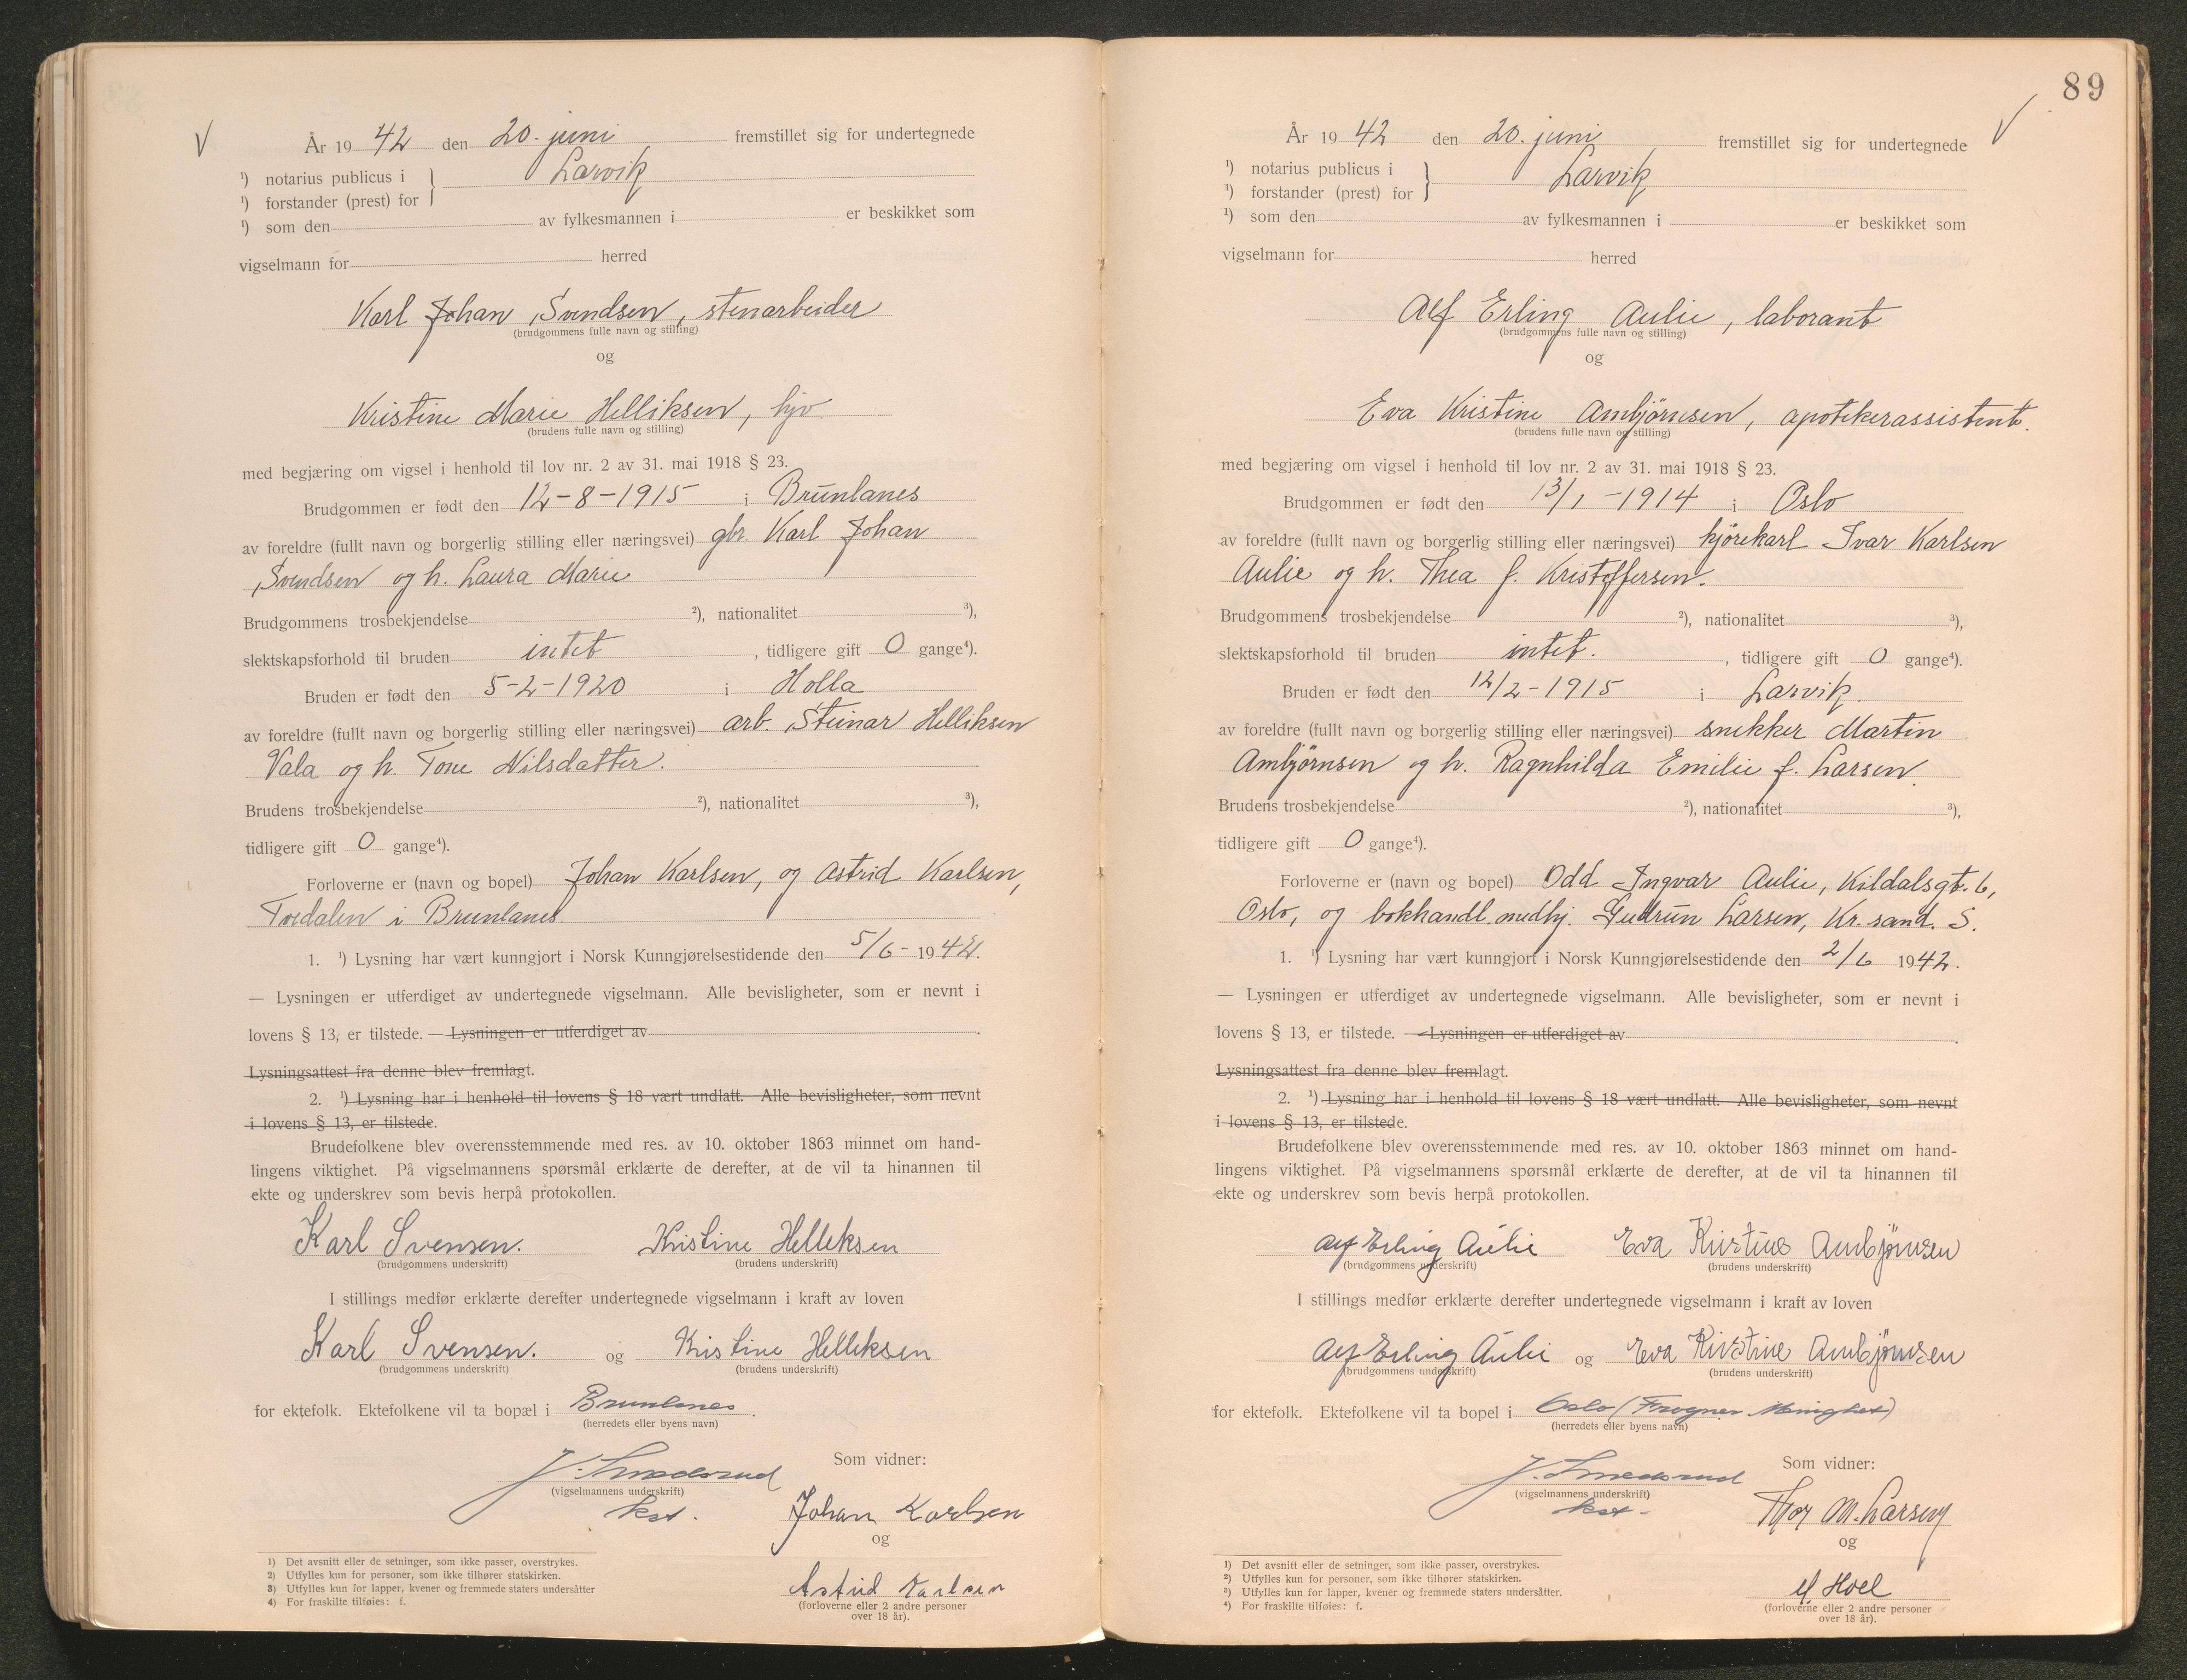 År 19 42 den 20. juni fremstillet sig for undertegnede
¹) notarius publicus i } Larvik
¹) forstander (prest) for
¹) som den av fylkesmannen i er beskikket som
vigselmann for herred
Karl Johan Svendsen, stenarbeider
(brudgommens fulle navn og stilling)
og
Kristine Marie Helliksen, hjv.
(brudens fulle navn og stilling)
med begjæring om vigsel i henhold til lov nr. 2 av 31. mai 1918 § 23.
Brudgommen er født den 12-8-1915 i Brunlanes
av foreldre (fullt navn og borgerlig stilling eller næringsvei) gbr. Karl Johan
Svendsen og h. Laura Marie
Brudgommens trosbekjendelse ²), nationalitet ³),
slektskapsforhold til bruden intet, tidligere gift 0 gange⁴).
Bruden er født den 5-2-1920 i Holla
av foreldre (fullt navn og borgerlig stilling eller næringsvei) arb. Steinar Helliksen
Vala og h. Tone Nilsdatter.
Brudens trosbekjendelse ²), nationalitet ³),
tidligere gift 0 gange⁴).
Forloverne er (navn og bopel) Johan Karlsen, og Astrid Karlsen,
Tvedalen i Brunlanes
1. ¹) Lysning har vært kunngjort i Norsk Kunngjørelsestidende den 5/6- 1942.
— Lysningen er utferdiget av undertegnede vigselmann. Alle bevisligheter, som er nevnt i
lovens § 13, er tilstede. — Lysningen er utferdiget av .
Lysningsattest fra denne blev fremlagt.
2. ¹) Lysning har i henhold til lovens § 18 vært undlatt. Alle bevisligheter, som nevnt
i lovens § 13, er tilstede.
Brudefolkene blev overensstemmende med res. av 10. oktober 1863 minnet om hand-
lingens viktighet. På vigselmannens spørsmål erklærte de derefter, at de vil ta hinannen til
ekte og underskrev som bevis herpå protokollen.
Karl Svensen. Kristine Helleksen
(brudgommens underskrift) (brudens underskrift)
I stillings medfør erklærte derefter undertegnede vigselmann i kraft av loven
Karl Svensen. og Kristine Helleksen
(brudgommens underskrift) (brudens underskrift)
for ektefolk. Ektefolkene vil ta bopæl i Brunlanes.
(herredets eller byens navn)
J. Smedsrud Som vidner:
(vigselmannens underskrift)
kst. Johan Karlsen
og
Astrid Karlsen
(forloverne eller 2 andre personer
over 18 år).
1) Det avsnitt eller de setninger, som ikke passer, overstrykes.
2) Utfylles kun for personer, som ikke tilhører statskirken.
3) Utfylles kun for lapper, kvener og fremmede staters undersåtter
4) For fraskilte tilføies: f.
89
År 19 42 den 20. juni fremstillet sig for undertegnede
¹) notarius publicus i } Larvik
¹) forstander (prest) for
¹) som den av fylkesmannen i er beskikket som
vigselmann for herred
Alf Erling Aulie, laborant
(brudgommens fulle navn og stilling)
og
Eva Kristine Ambjørnsen, apotekerassistent.
(brudens fulle navn og stilling)
med begjæring om vigsel i henhold til lov nr. 2 av 31. mai 1918 § 23.
Brudgommen er født den 13/1-1914 i Oslo
av foreldre (fullt navn og borgerlig stilling eller næringsvei) kjørekarl Ivar Karlsen
Aulie og h. Thea f. Kristoffersen.
Brudgommens trosbekjendelse ²), nationalitet ³),
slektskapsforhold til bruden intet., tidligere gift 0 gange⁴).
Bruden er født den 12/2-1915 i Larvik.
av foreldre (fullt navn og borgerlig stilling eller næringsvei) snekker Martin
Ambjørnsen og h. Ragnhilda Emilie f. Larsen.
Brudens trosbekjendelse ²), nationalitet ³),
tidligere gift 0 gange⁴).
Forloverne er (navn og bopel) Odd Ingvar Aulie, Kildalsgt. 6,
Oslo, og bokhandl.medhj. Gudrun Larsen, Kr.sand. S.
1. ¹) Lysning har vært kunngjort i Norsk Kunngjørelsestidende den 2/6 1942.
— Lysningen er utferdiget av undertegnede vigselmann. Alle bevisligheter, som er nevnt i
lovens § 13, er tilstede. — Lysningen er utferdiget av .
Lysningsattest fra denne blev fremlagt.
2. ¹) Lysning har i henhold til lovens § 18 vært undlatt. Alle bevisligheter, som nevnt
i lovens § 13, er tilstede.
Brudefolkene blev overensstemmende med res. av 10. oktober 1863 minnet om hand-
lingens viktighet. På vigselmannens spørsmål erklærte de derefter, at de vil ta hinannen til
ekte og underskrev som bevis herpå protokollen.
Alf Erling Aulie Eva Kristine Ambjørnsen
(brudgommens underskrift) (brudens underskrift)
I stillings medfør erklærte derefter undertegnede vigselmann i kraft av loven
Alf Erling Aulie og Eva Kristine Ambjørnsen
(brudgommens underskrift) (brudens underskrift)
for ektefolk. Ektefolkene vil ta bopel i Oslo (Frogner Menighet)
(herredets eller byens navn)
J. Smedsrud Som vidner:
(vigselmannens underskrift)
kst. Thor M. Larsen
og
Hoel
(forloverne eller 2 andre personer
over 18 år).
1) Det avsnitt eller de setninger, som ikke passer, overstrykes.
2) Utfylles kun for personer, som ikke tilhører statskirken.
3) Utfylles kun for lapper, kvener og fremmede staters undersåtter.
4) For fraskilte tilføies: f.